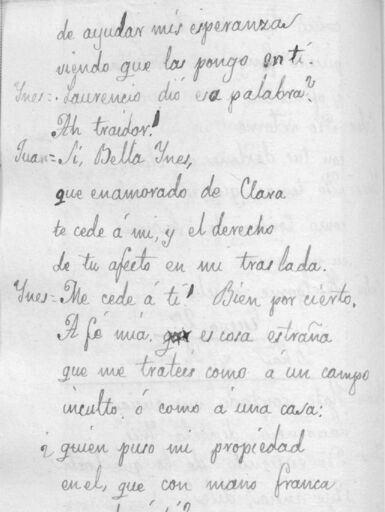 de ayudar mis esperanzas
viendo que las pongo en tí
Ynes = Laurencio dió esa palabra?
Ah traidor!
Juan = Sí, Bella Ynes,
que enamorado de Clara
te cede á mi, y el derecho
de tu afecto en mi traslada.
Ynes = Me cede á tí! Bien por cierto.
A fé mia. es cosa estraña
que me trateis como á un campo
inculto ó como á una casa:
¿ quien puso mi propiedad
en el, que con mano franca